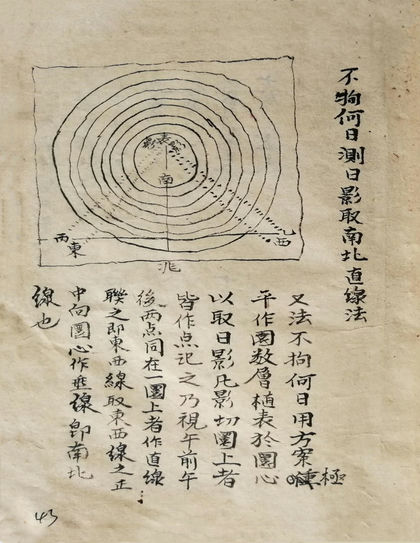 不拘何日測日影取南北直線法
又法不拘何日用方案極
平作圓数層植表於圓心
以取日影凡影切圓上者
皆作点记之乃視午前午
後两点同在一圓上者作直線
聯之即東西線取東西線之正
中向圓心作垂線即南北
線也
影表影
南
西東
西
北
43